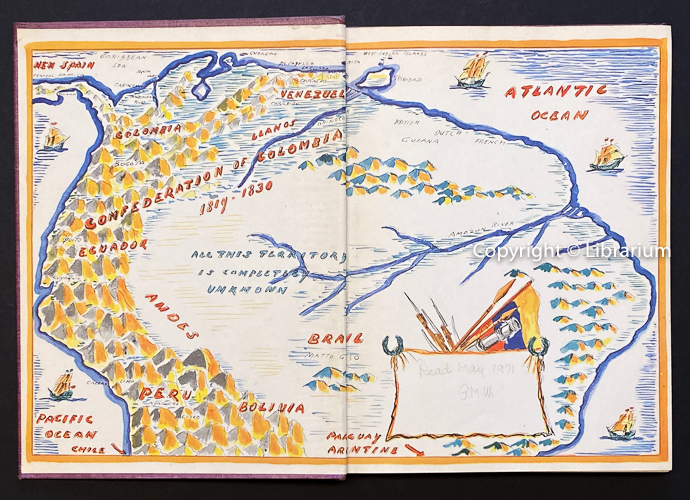 NEW SPAIN
CARIBBEAN
SEA
CURACAO
TRINIDAD
VENEZUEL
ATLANTIC
OCEAN
COLOMBIA
LLANOS
BRITISH
DUTCH
FRENCH
GUIANA
BOGOTA
CONFEDERATION OF COLOMBIA
1819-1830
QUITO
ECUADOR
AMAZON RIVER
Copyright © Librarium
ALL THIS TERRITORY
IS COMPLETELY
UNKNOWN
ANDES
BRAIL
MATTO GRO
Read May 1971
PERU
BOLIVIA
PACIFIC
OCEAN
CHILE
PARGUAY
ARINTINE